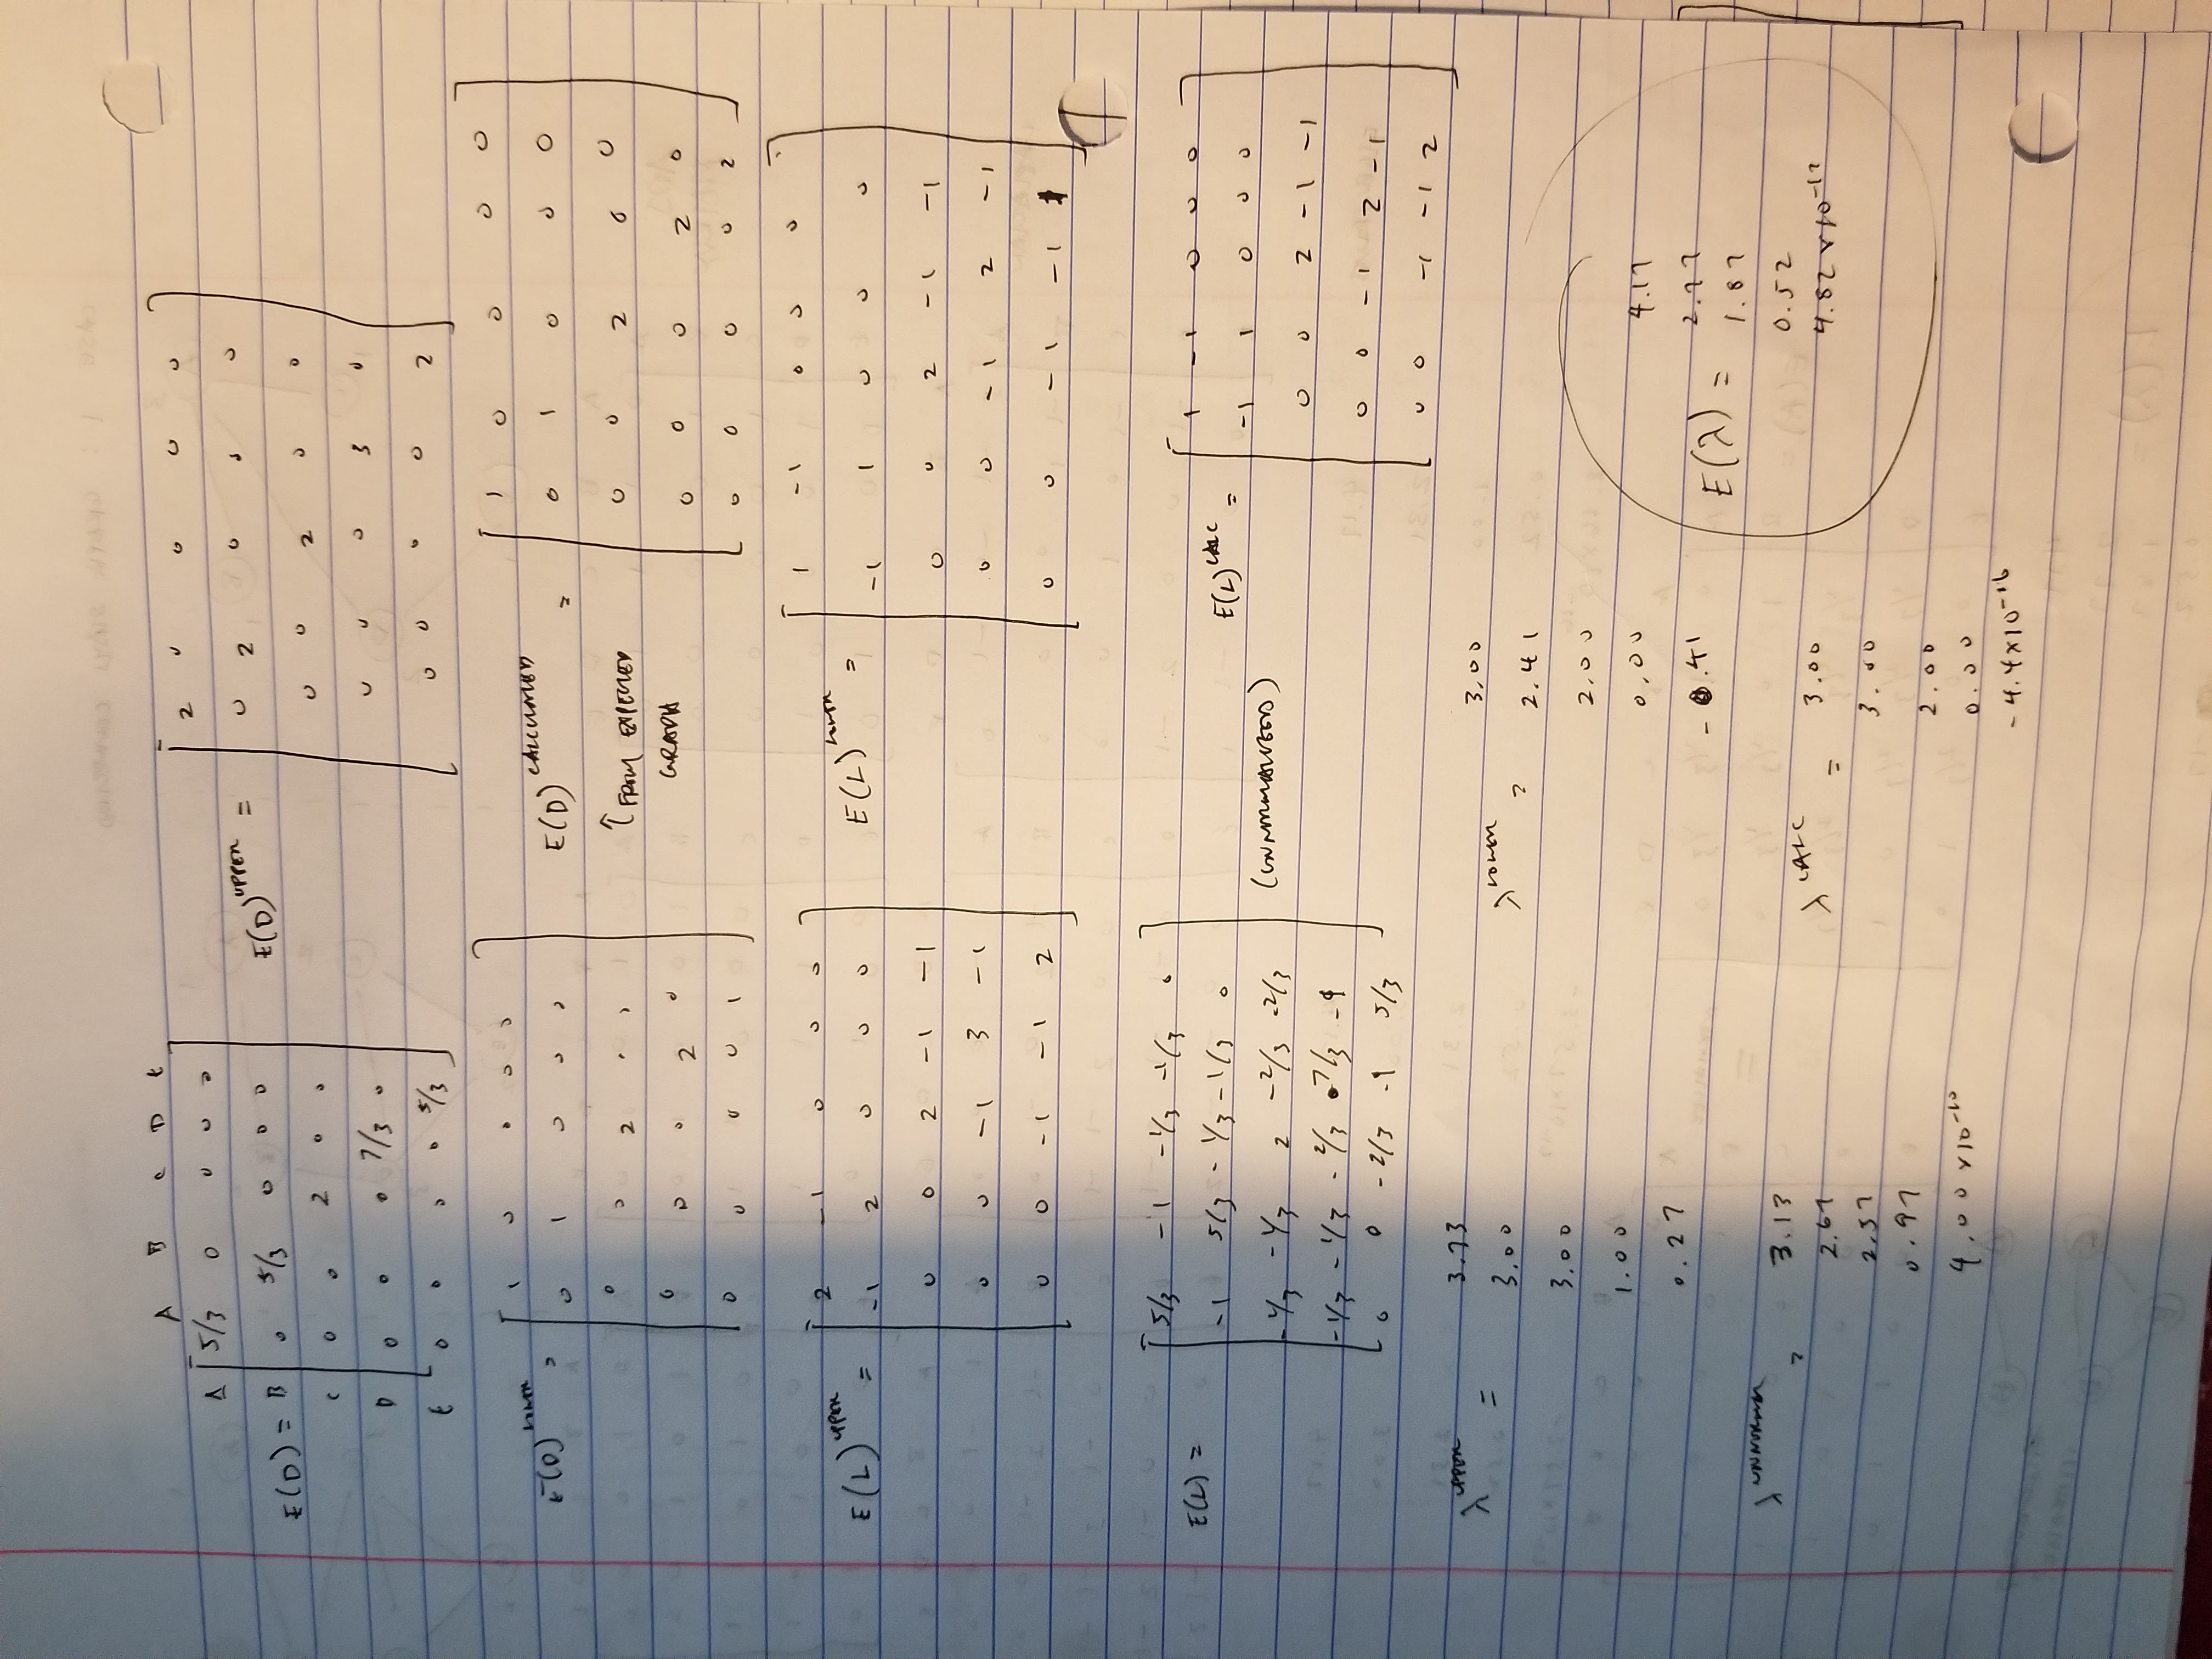 A B C D E
A 5/3 0 0 0 0
E(D) = B 0 5/3 0 0 0
C 0 0 2 0 0
D 0 0 0 7/3 0
E 0 0 0 0 5/3
E(D)^UPPER =
2 0 0 0 0
0 2 0 0 0
0 0 2 0 0
0 0 0 3 0
0 0 0 0 2
E(D)^LOWER =
1 0 0 0 0
0 1 0 0 0
0 0 2 0 0
0 0 0 2 0
0 0 0 0 1
E(D)^CALCULATED =
↑ FROM EXPECTED
GRAPH
1 0 0 0 0
0 1 0 0 0
0 0 2 0 0
0 0 0 2 0
0 0 0 0 2
E(L)^UPPER =
2 -1 0 0 0
-1 2 0 0 0
0 0 2 -1 -1
0 0 -1 3 -1
0 0 -1 -1 2
E(L)^LOWER =
1 -1 0 0 0
-1 1 0 0 0
0 0 2 -1 -1
0 0 -1 2 -1
0 0 -1 -1 1
E(L) =
5/3 -1 -1/3 -1/3 0
-1 5/3 -1/3 -1/3 0
-1/3 -1/3 2 -2/3 -2/3
-1/3 -1/3 -2/3 7/3 -1
0 0 -2/3 -1 5/3
(UNNORMALIZED)
E(L)^CALC =
1 -1 0 0 0
-1 1 0 0 0
0 0 2 -1 -1
0 0 -1 2 -1
0 0 -1 -1 2
λ^UPPER =
3.73
3.00
3.00
1.00
0.27
λ^LOWER =
3.00
2.41
2.00
0.00
-0.41
E(λ) =
4.17
1.87
0.52
4.82 x10^-17
λ^UNNORMED =
3.13
2.57
0.97
4.00 x10^-10
λ^CALC =
3.00
3.00
2.00
0.00
-4.4x10^-16